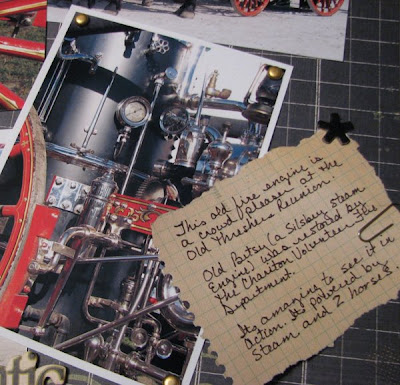 This old fire engine is
a crowd pleaser at the
Old Threshers Reunion.
Old Betsy (a Silsby steam
Engine) was restored by
The Chariton Volunteer Fire
Department.
Its amazing to see it in
action. It's powered by
steam and 2 horses.